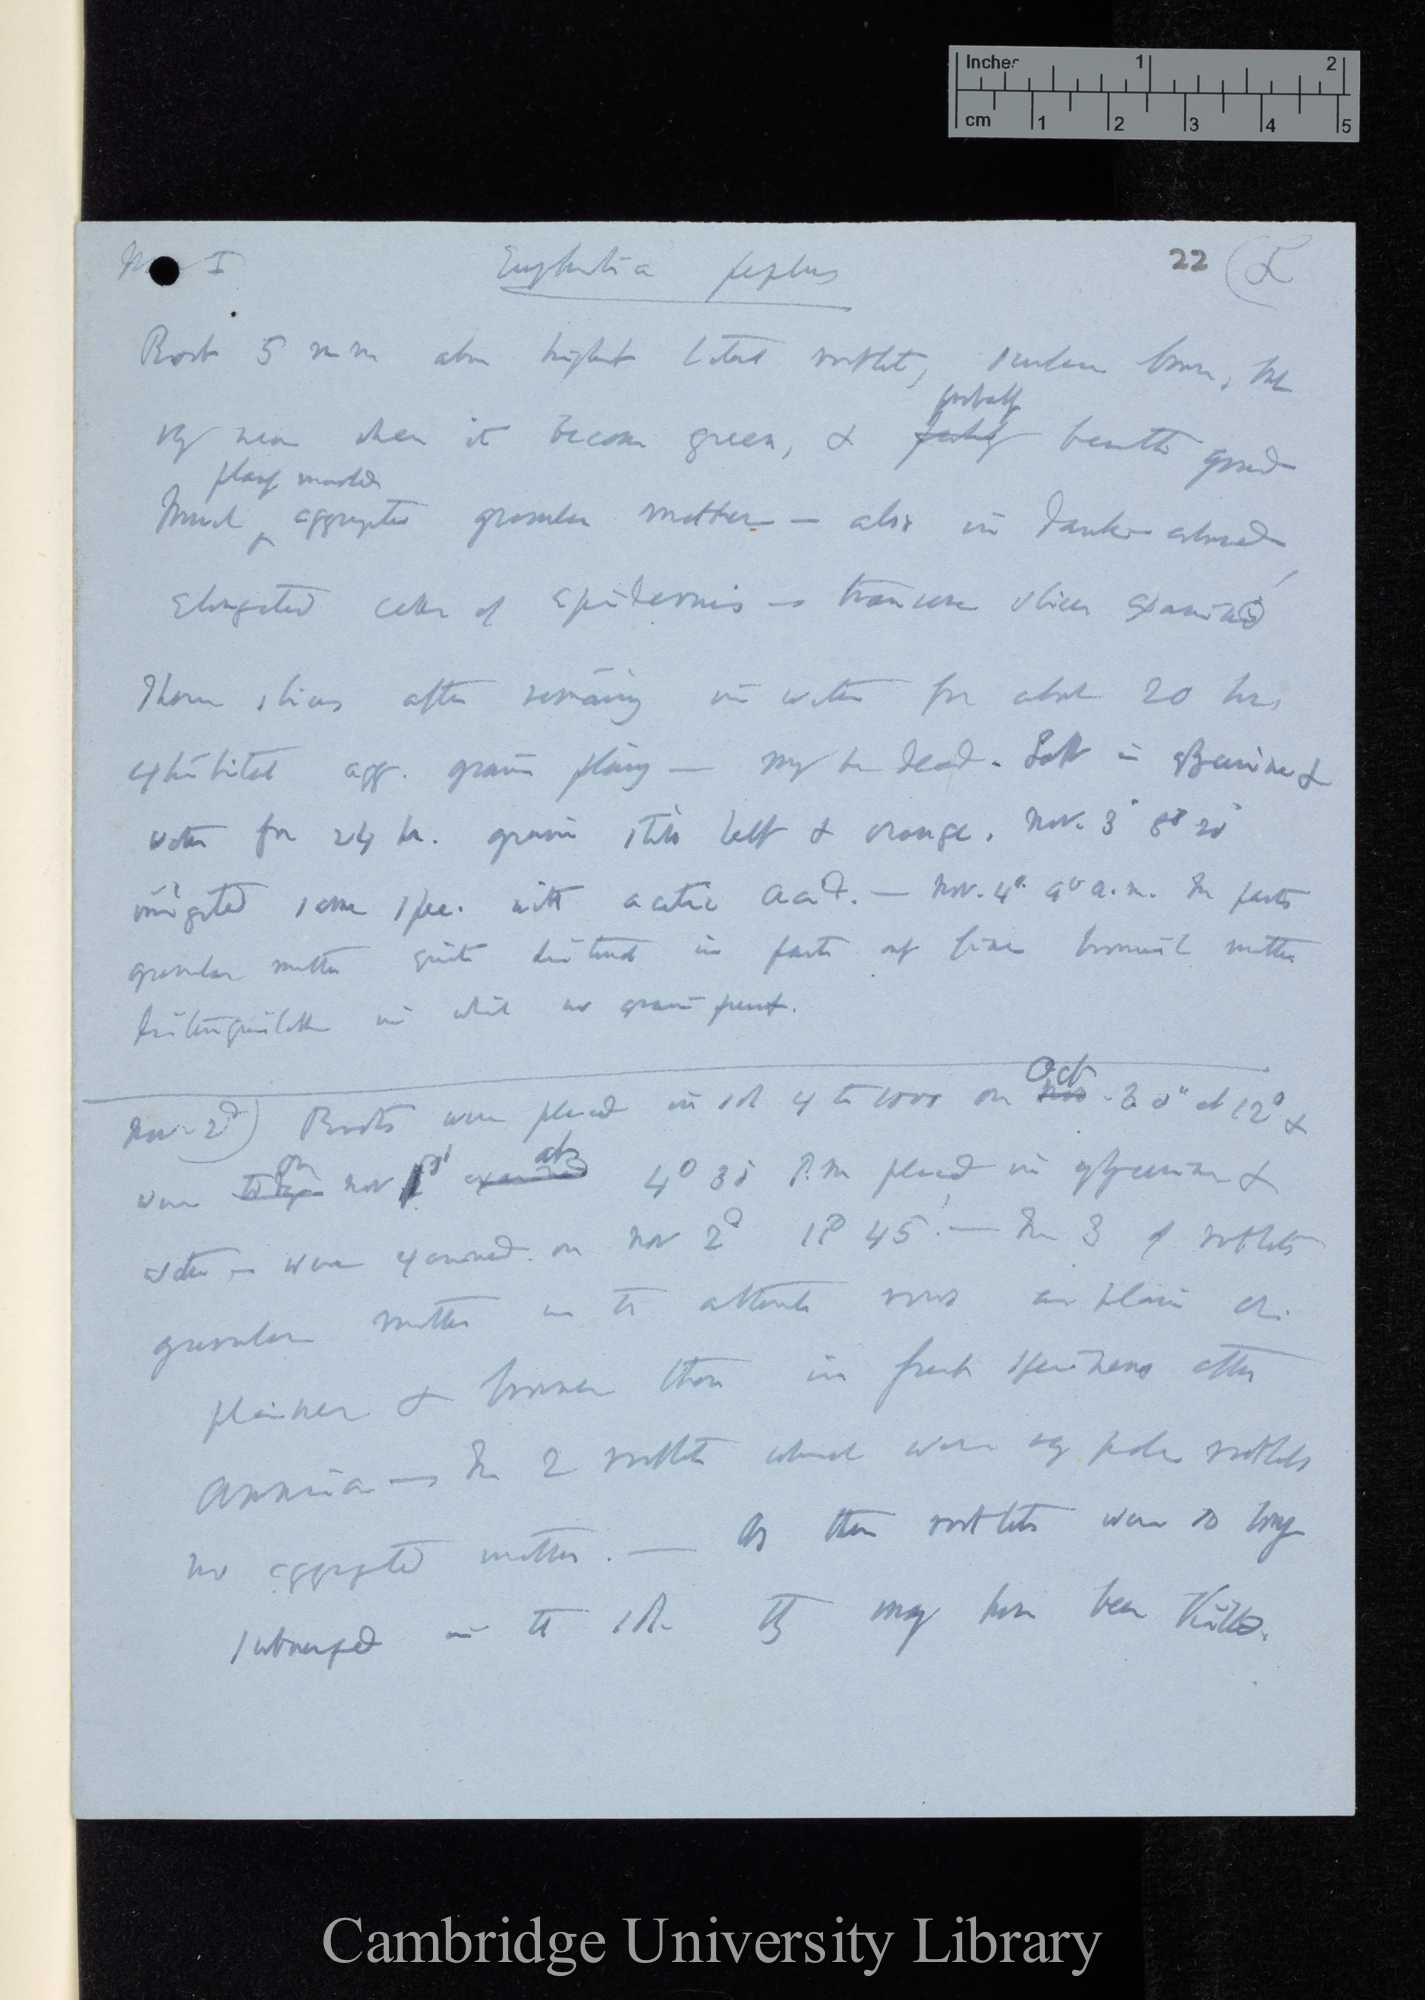 Inches 1 2
cm 1 2 3 4 5
I Euphorbia peplus 22
Root 5 mm above highest lateral rootlet, brown, but
very near where it become green, & probably beneath ground
plainly marked
Much aggregated granular matter — also in
elongated cells of epidermis — transverse slices examined
These slices after remaining in water for about 20 hrs
exhibited agg. grains plainly — may be dead. Left in glycerine &
water for 24 hr. grains still left & orange. Nov. 3
irrigated some spec. with acetic acid. — Nov. 4 9° a.m. In parts
granular matter quite distinct in parts only fine brownish matter
distinguishable in which no grains present.
Nov. 2d) Roots were placed in sol 4 to 1000 on Oct 30 at 12° &
were on Nov at 4° 35 P.m placed in glycerine &
water — were examined on Nov 2d 1° 45'. — In 3 of rootlets
granular matter in the alternate rows as plain or
plainer & browner than in fresh specimens after
Ammonia — In 2 rootlets which were very rootlets
no aggregated matter. — As these rootlets were so long
submerged in the sol. they may have been killed.
Cambridge University Library